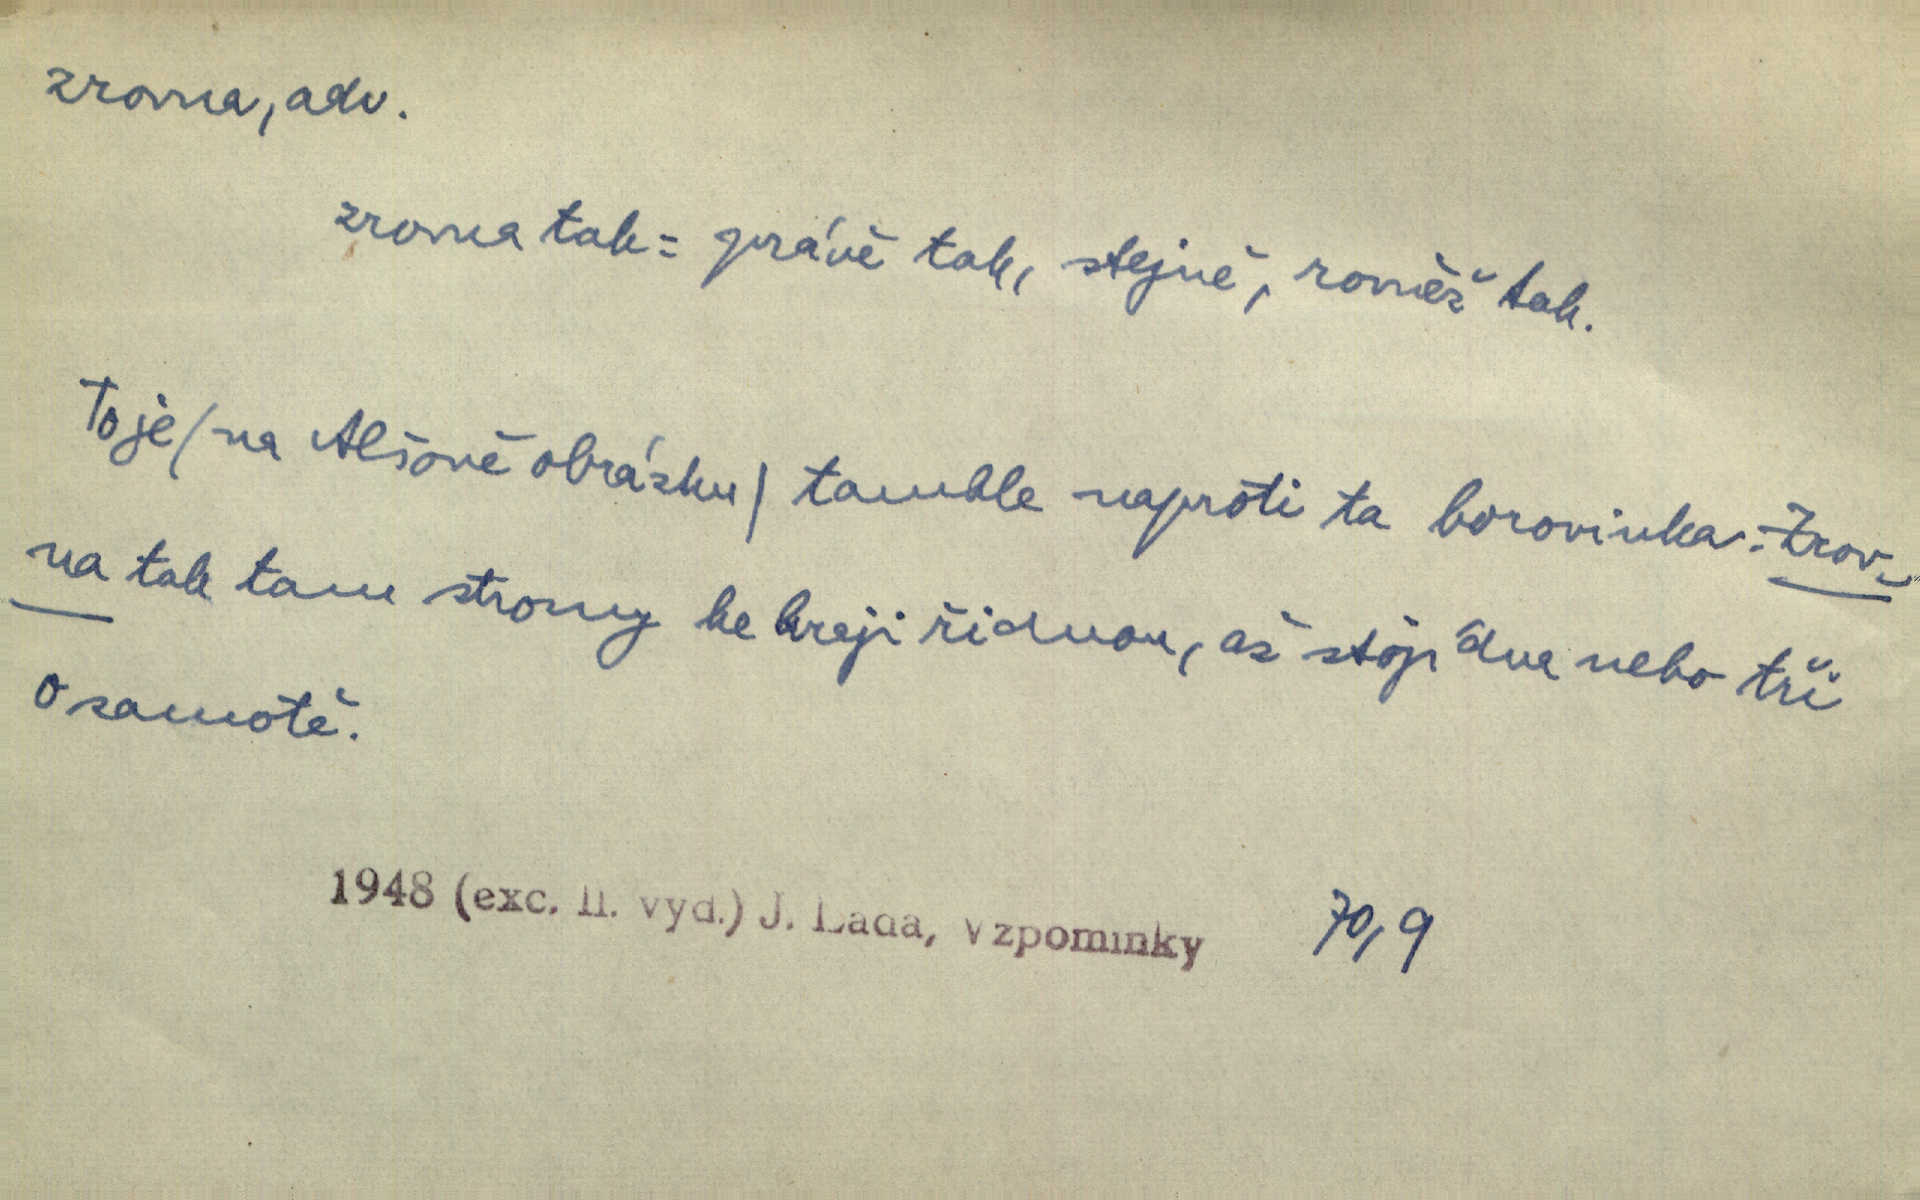 zrovna, adv.
zrovna tak = právě tak, stejně, rovněž tak.
To je /na Alšově obrázku/ tamhle naproti ta borovinka. Zrov-
na tak tam stromy ke kraji řidnou, až stojí dva nebo tři
o samotě.
1948 (exc. II. vyd.) J. Lada, Vzpomínky 70,9